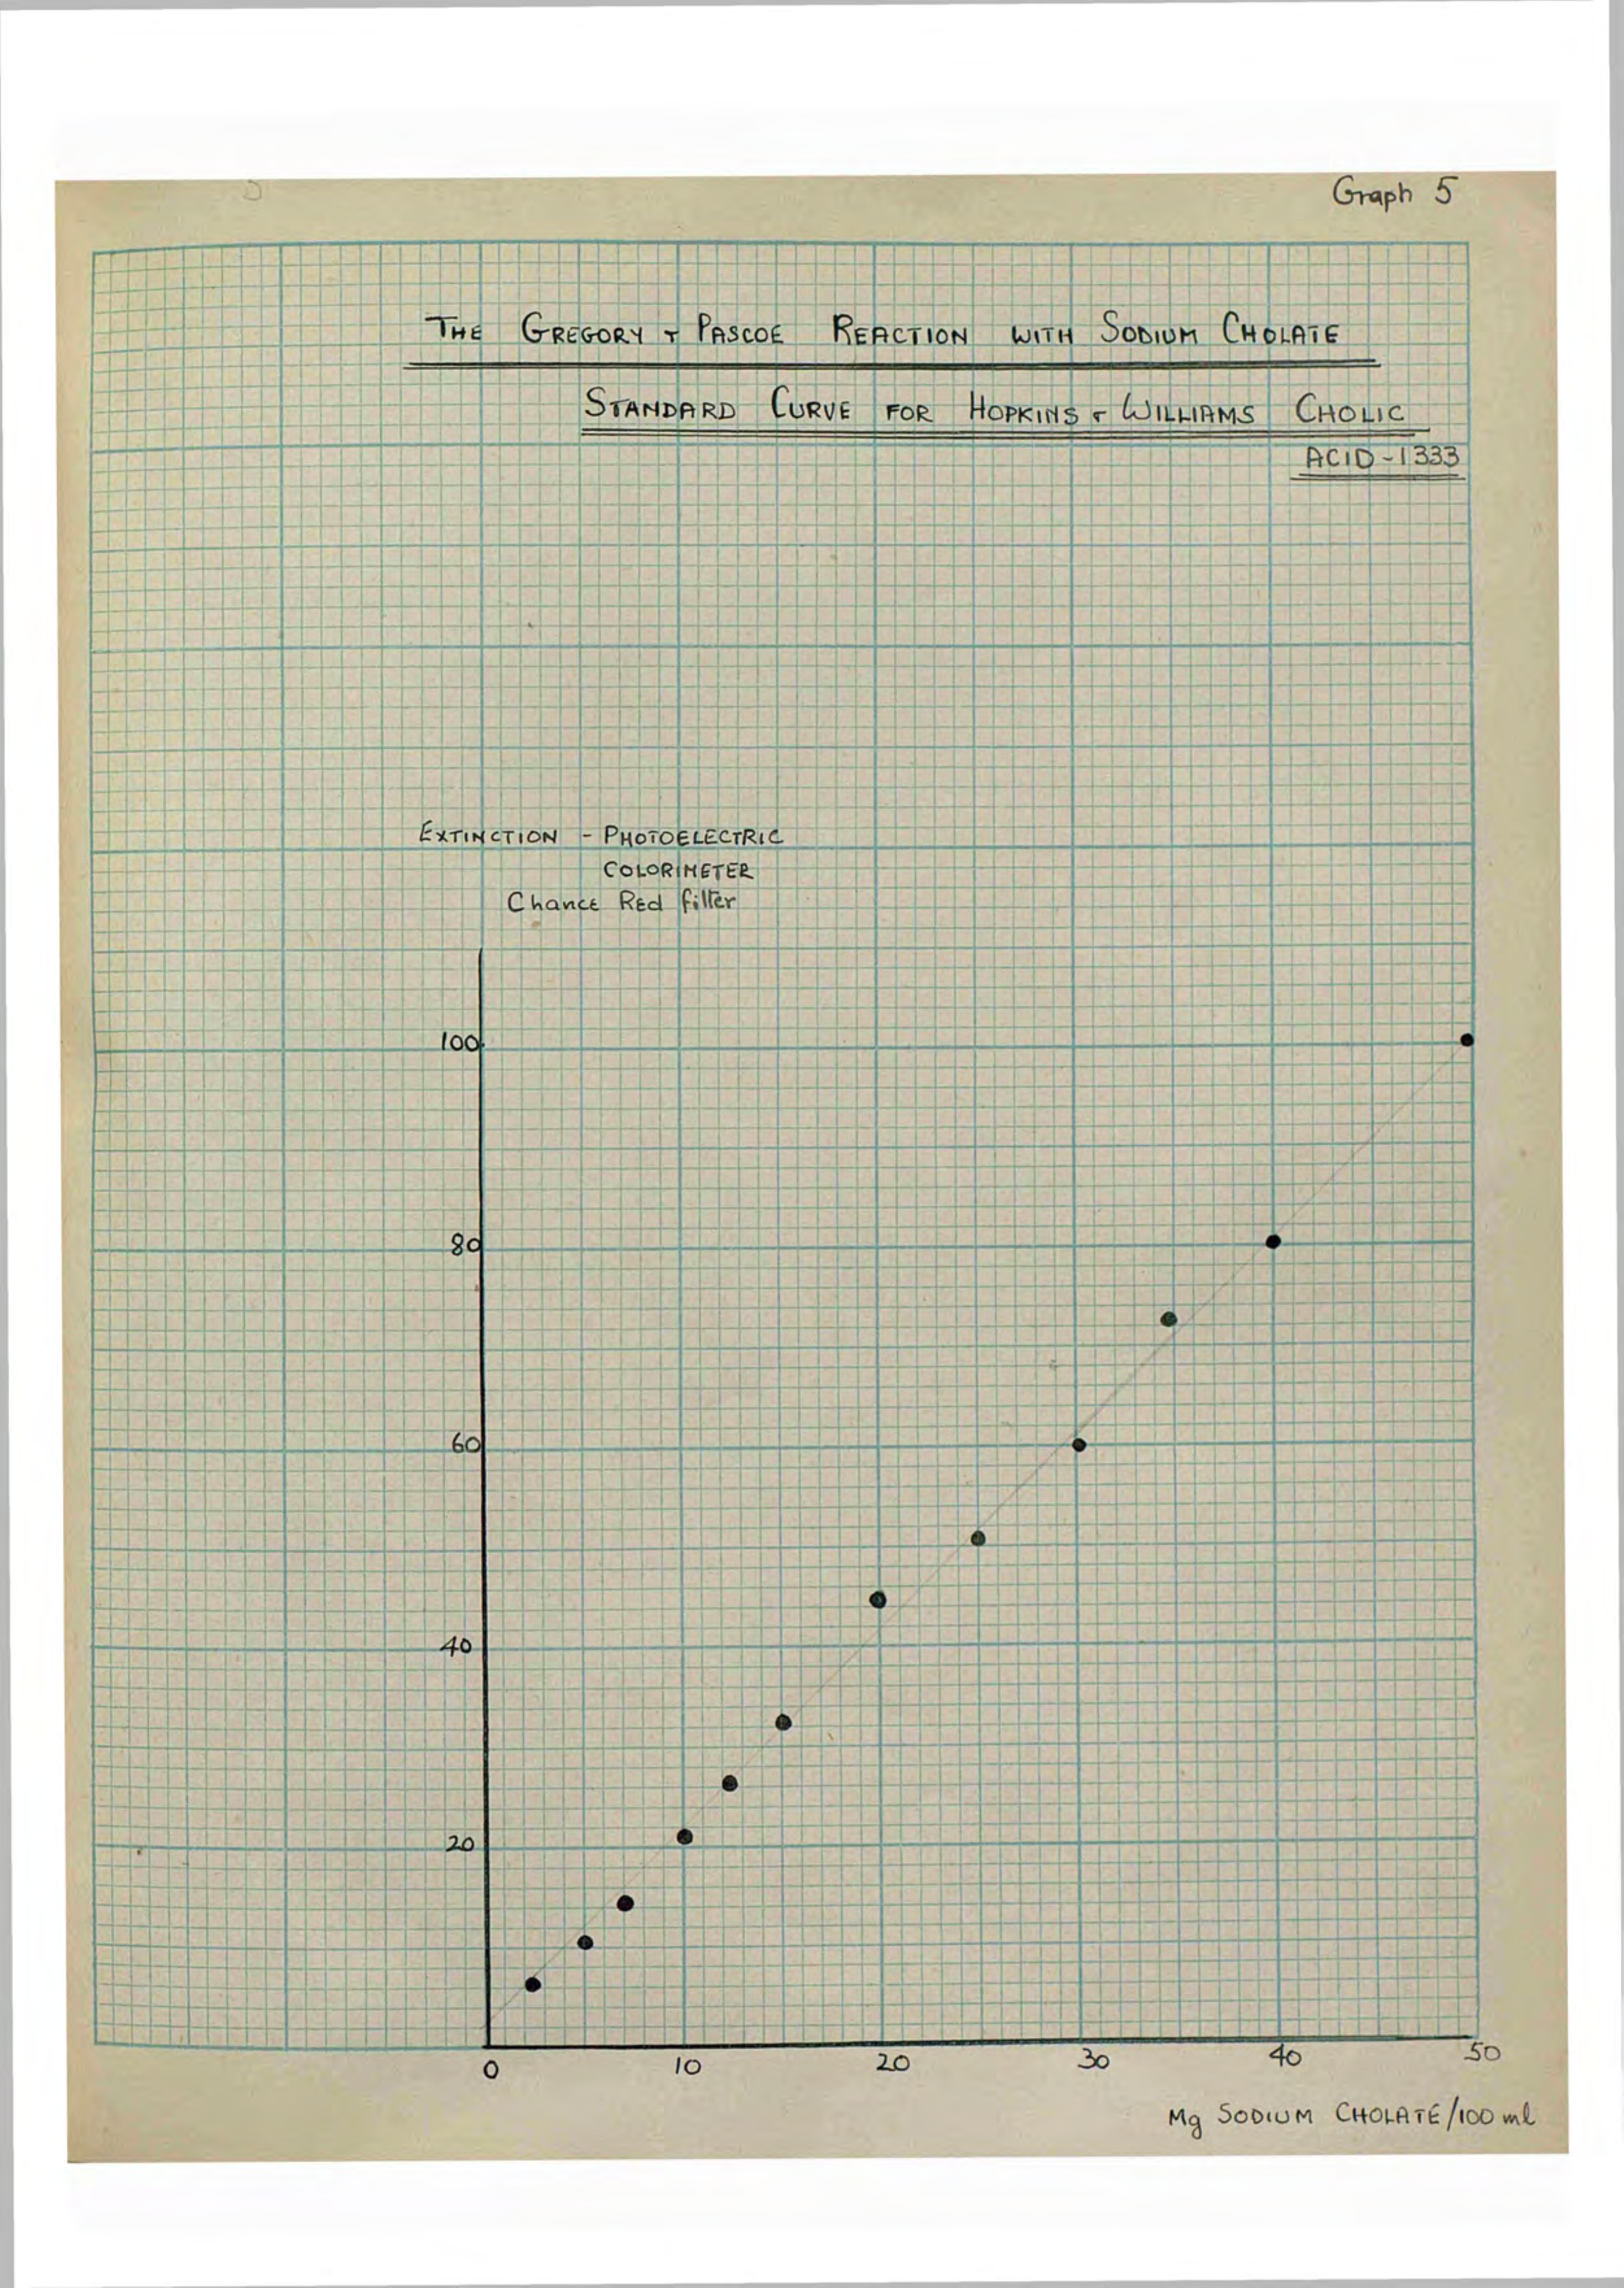 Graph 5
THE GREGORY & PASCOE REACTION WITH SODIUM CHOLATE
STANDARD CURVE FOR HOPKINS & WILLIAMS CHOLIC
ACID - 1333
EXTINCTION - PHOTOELECTRIC
COLORIMETER
Chance Red filter
100
80
60
40
20
0 10 20 30 40 50
Mg SODIUM CHOLATE/100 ml